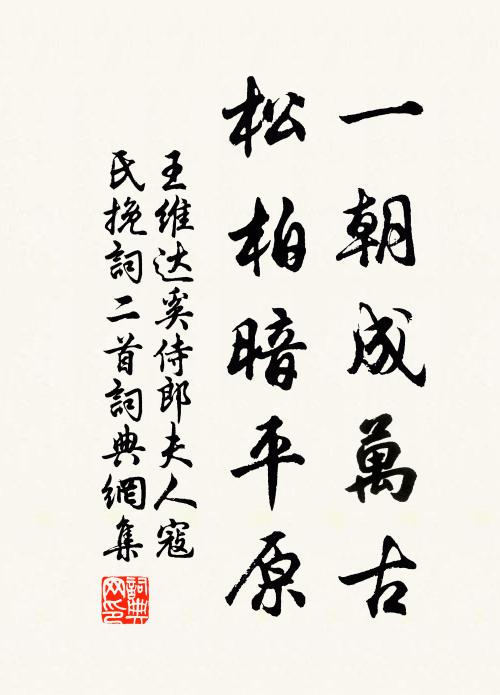 一朝成萬古
松柏暗平原
王維达奚侍郎夫人寇
氏挽詞二首詞典網集
詞典网印